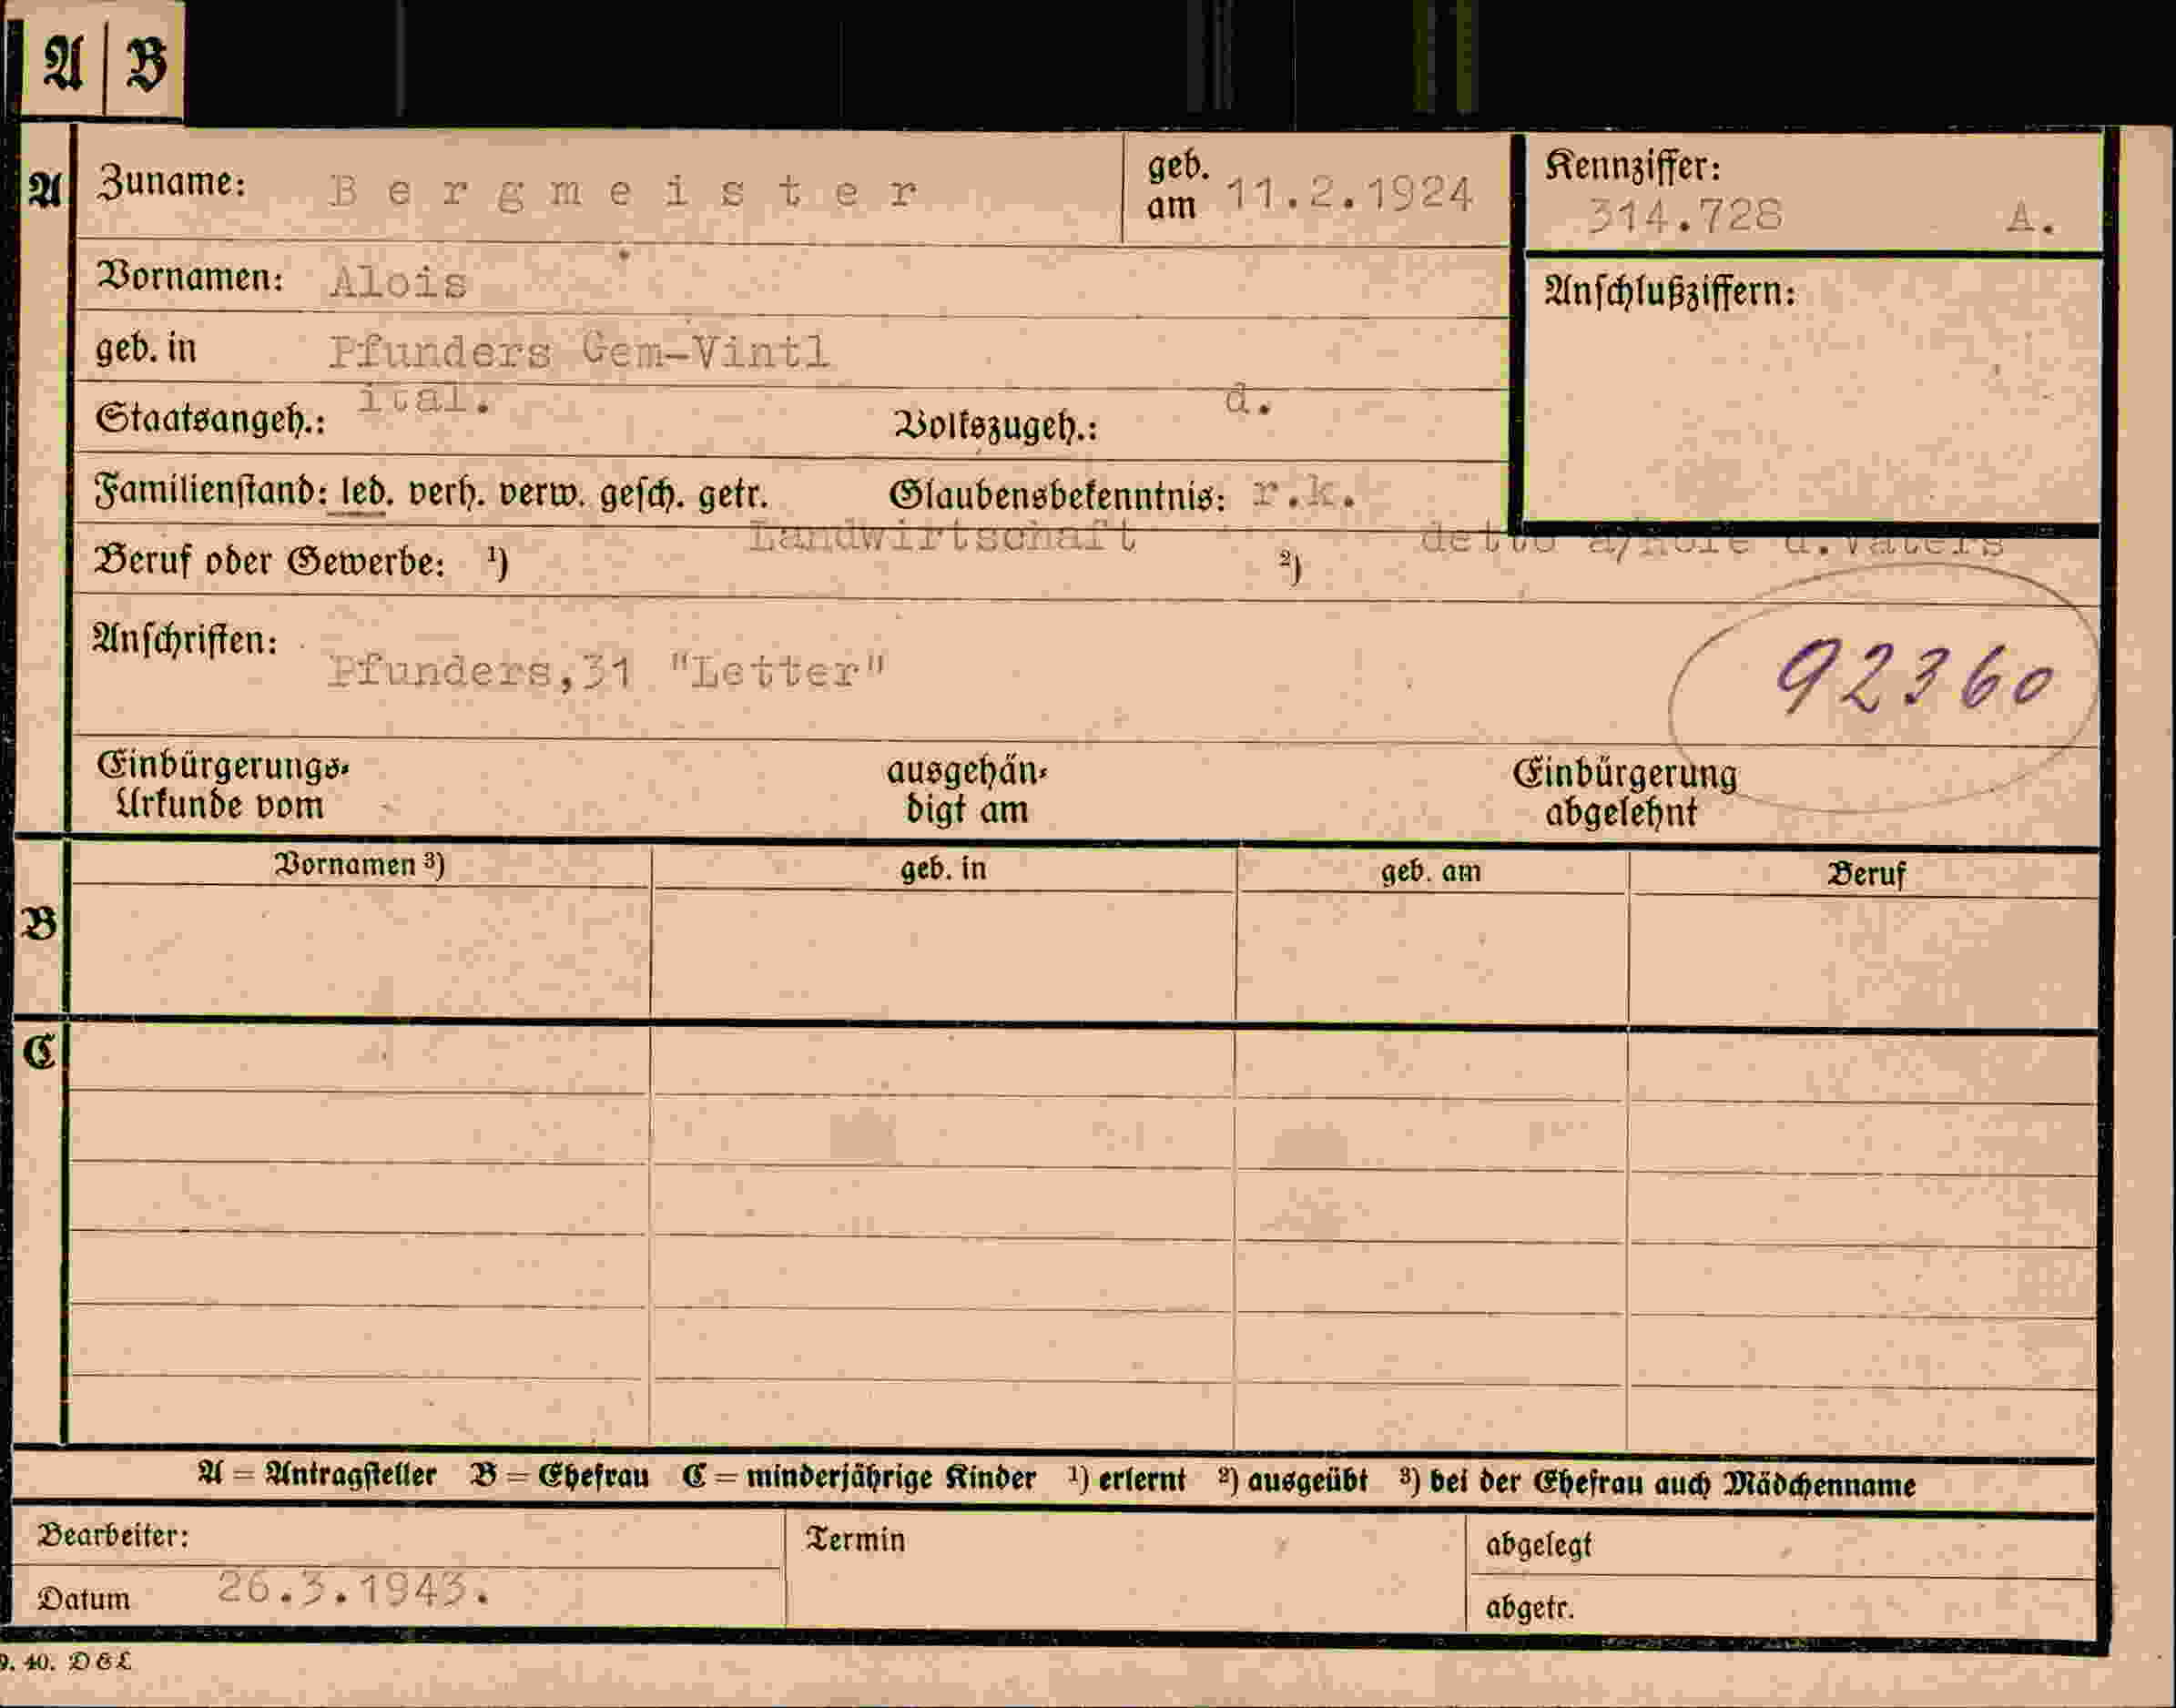 A B
A Zuname: Bergmeister geb. am 11.2.1924 Kennziffer: 314.728 A.
Vornamen: Alois Anschlußziffern:
geb. in Pfunders Gem-Vintl
Staatsangeh.: ital. Volkszugeh.: d.
Familienstand: led. verh. verw. gesch. getr. Glaubensbekenntnis: r.k.
Beruf oder Gewerbe: ¹) Landwirtschaft ²) detto a/Hofe d.Vaters
Anschriften: Pfunders,31 "Letter" 92360
Einbürgerungs- Urkunde vom ausgehän- digt am Einbürgerung abgelehnt
Vornamen ³) geb. in geb. am Beruf
B
C
A = Antragsteller B = Ehefrau C = minderjährige Kinder ¹) erlernt ²) ausgeübt ³) bei der Ehefrau auch Mädchenname
Bearbeiter: Termin abgelegt
Datum 26.3.1943. abgetr.
9. 40. D&L